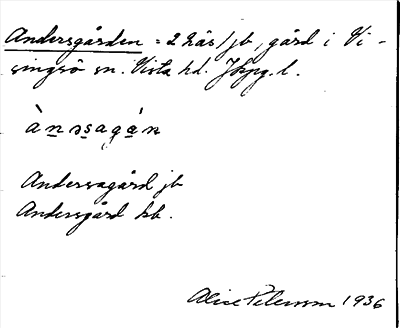 Andersgården = 2 häs/jb, gård i Vi-
singsö sn. Vista hd. Jkpg. l.
ànəs̱agà̱n
Andersagård jb
Andersgård kb.
Alice Petersson 1936